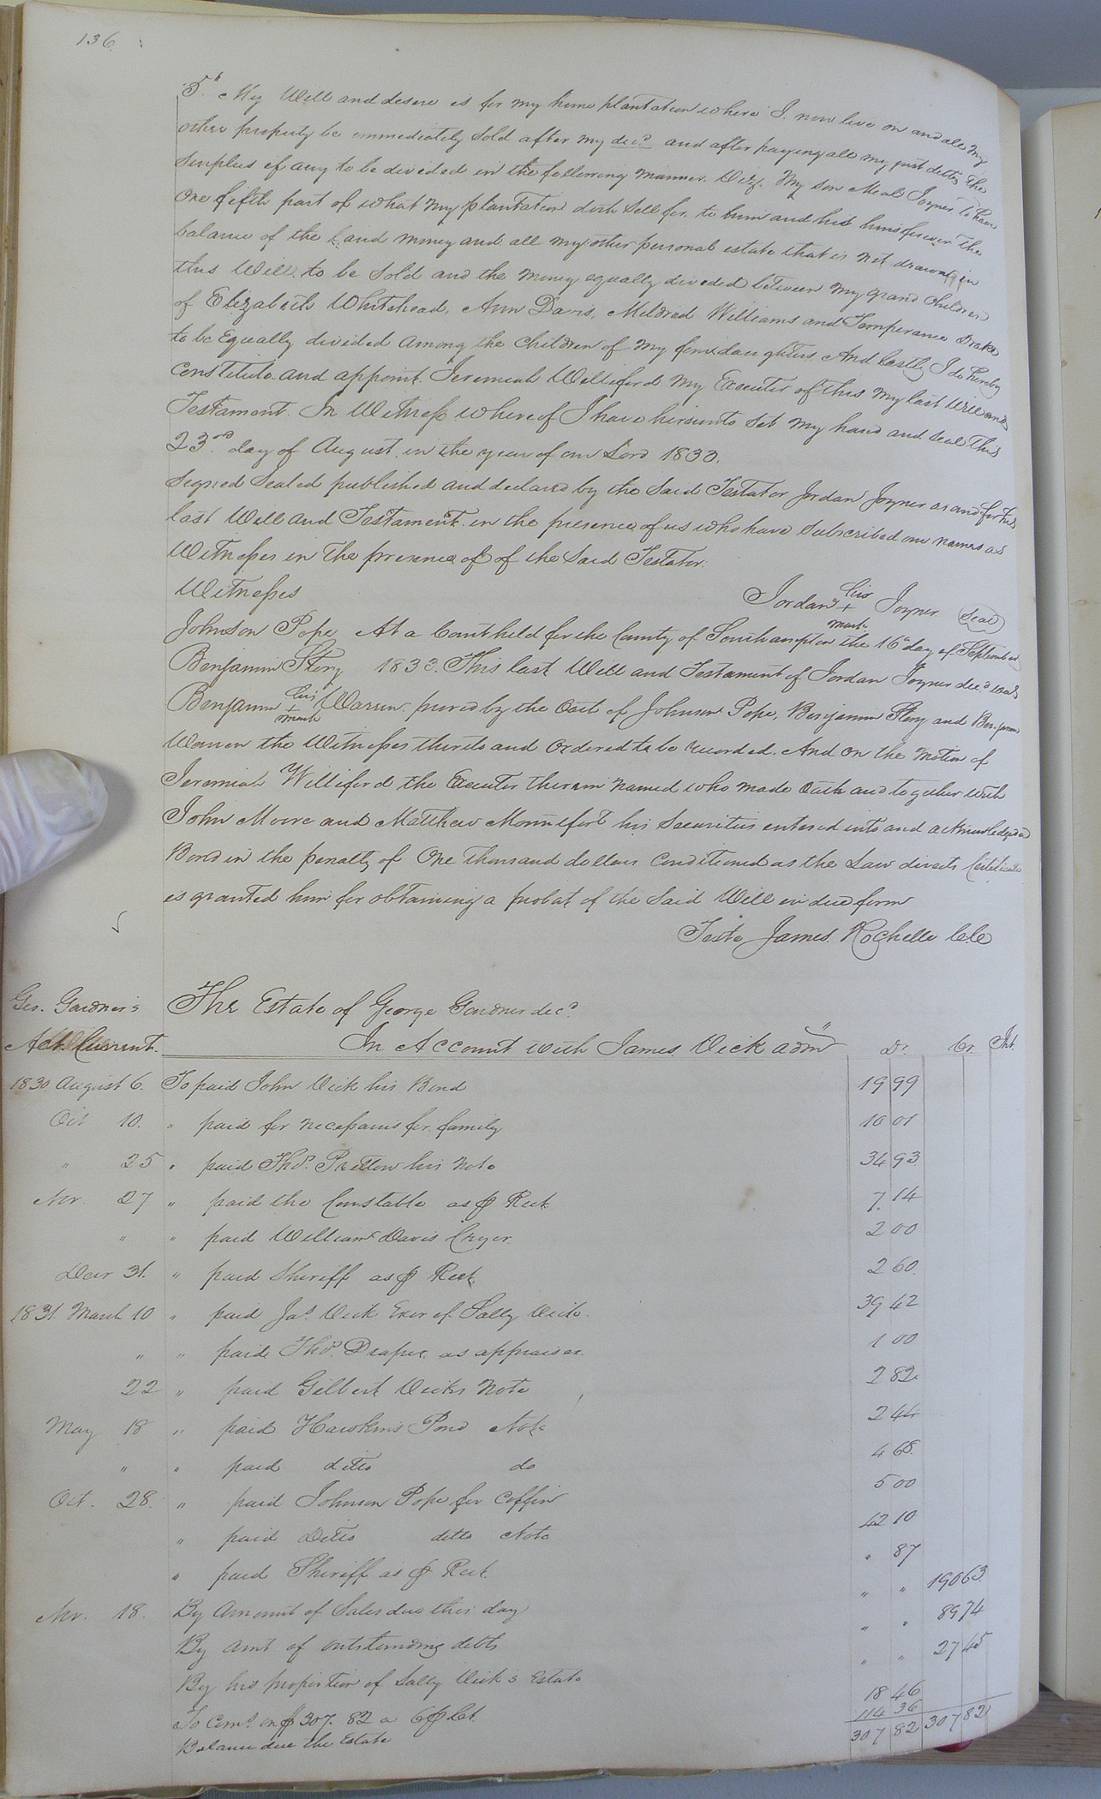 136
5th My Will and desire is for my home plantation where I now live on and all my
other property be immediately Sold after my decd and after paying all my just debts the
Surplus if any to be divided in the following manner. Viz. My son Meal Joyner to have
One fifth part of what my plantation doth Sell for to him and his hiars forever the
balance of the Land money and all my other personal estate that is not drawn in
this Will, to be Sold and the money equally divided between my grand Children
of Elizabeth Whitehead, Ann Davis, Mildred Williams and Temperance Drake
to be Equally divided among the Children of my four daughters. And lastly I do hereby
Constitute and appoint Jeremiah Williford my Executor of this my last Will and
Testament. In Witness whereof I have hereunto Set my hand and Seal This
23rd day of August in the year of our Lord 1833.
Signed Sealed published and declared by the Said Testator Jordan Joyner as and for his
last Will and Testament in the presence of us who have Subscribed our names as
Witnesses in The presence of of the Said Testator.
Witnesses Jordan his + mark Joyner (Seal)
Johnson Pope At a Court held for the County of Southampton the 16th day of September
Benjamin Story 1833. This last Will and Testament of Jordan Joyner decd was
Benjamin his + mark Warren proved by the Oath of Johnson Pope, Benjamin Story and Benjamin
Warren the Witnesses thereto and Ordered to be recorded. And on the Motion of
Jeremiah Williford the Executor therein named who made Oath and together with
John Moore and Matthew Mountfort his Securities entered into and acknowledged a
Bond in the penalty of One thousand dollars Conditioned as the Law directs Certificate
is granted him for obtaining a probat of the Said Will in due form
Teste James Rochelle C.C.
Geo. Gardner's The Estate of George Gardner decd
Acct. Current. In Account with James Vick admr Dr. Cr. Int.
1830 August 6. To paid John Vick his Bond 19 99
Oct 10. " paid for necessaries for family 10 01
" 25 " paid Thos. Pretlow his Note 34 93
Nov. 27 " paid the Constable as ⅌ Rect 7. 14
" " paid William Davis Cryer 2 00
Decr 31. " paid Sheriff as ⅌ Rect 2 60
1831 March 10 " paid Jas. Vick Exor of Sally Vick. 39 42
" " paid Thos. Draper as appraiser 1 00
22 " paid Gilbert Vicks Note 2 82
May 18 " paid Hawkins Pond Note 2 44
" " paid ditto do 4 68
Oct. 28. " paid Johnson Pope for Coffin 5 00
" paid Ditto ditto Note 42 10
" paid Sheriff as ⅌ Rect " 87
Nov. 18. By Amount of Sales due this day " " 190 63
By amt of outstanding debts " " 89 74
By his proportion of Sally Vick's Estate " " 27 45
To Coms. on $307. 82 a 6 ⅌ Ct. 18 46
Balance due the Estate 114 36
307 82 307 82